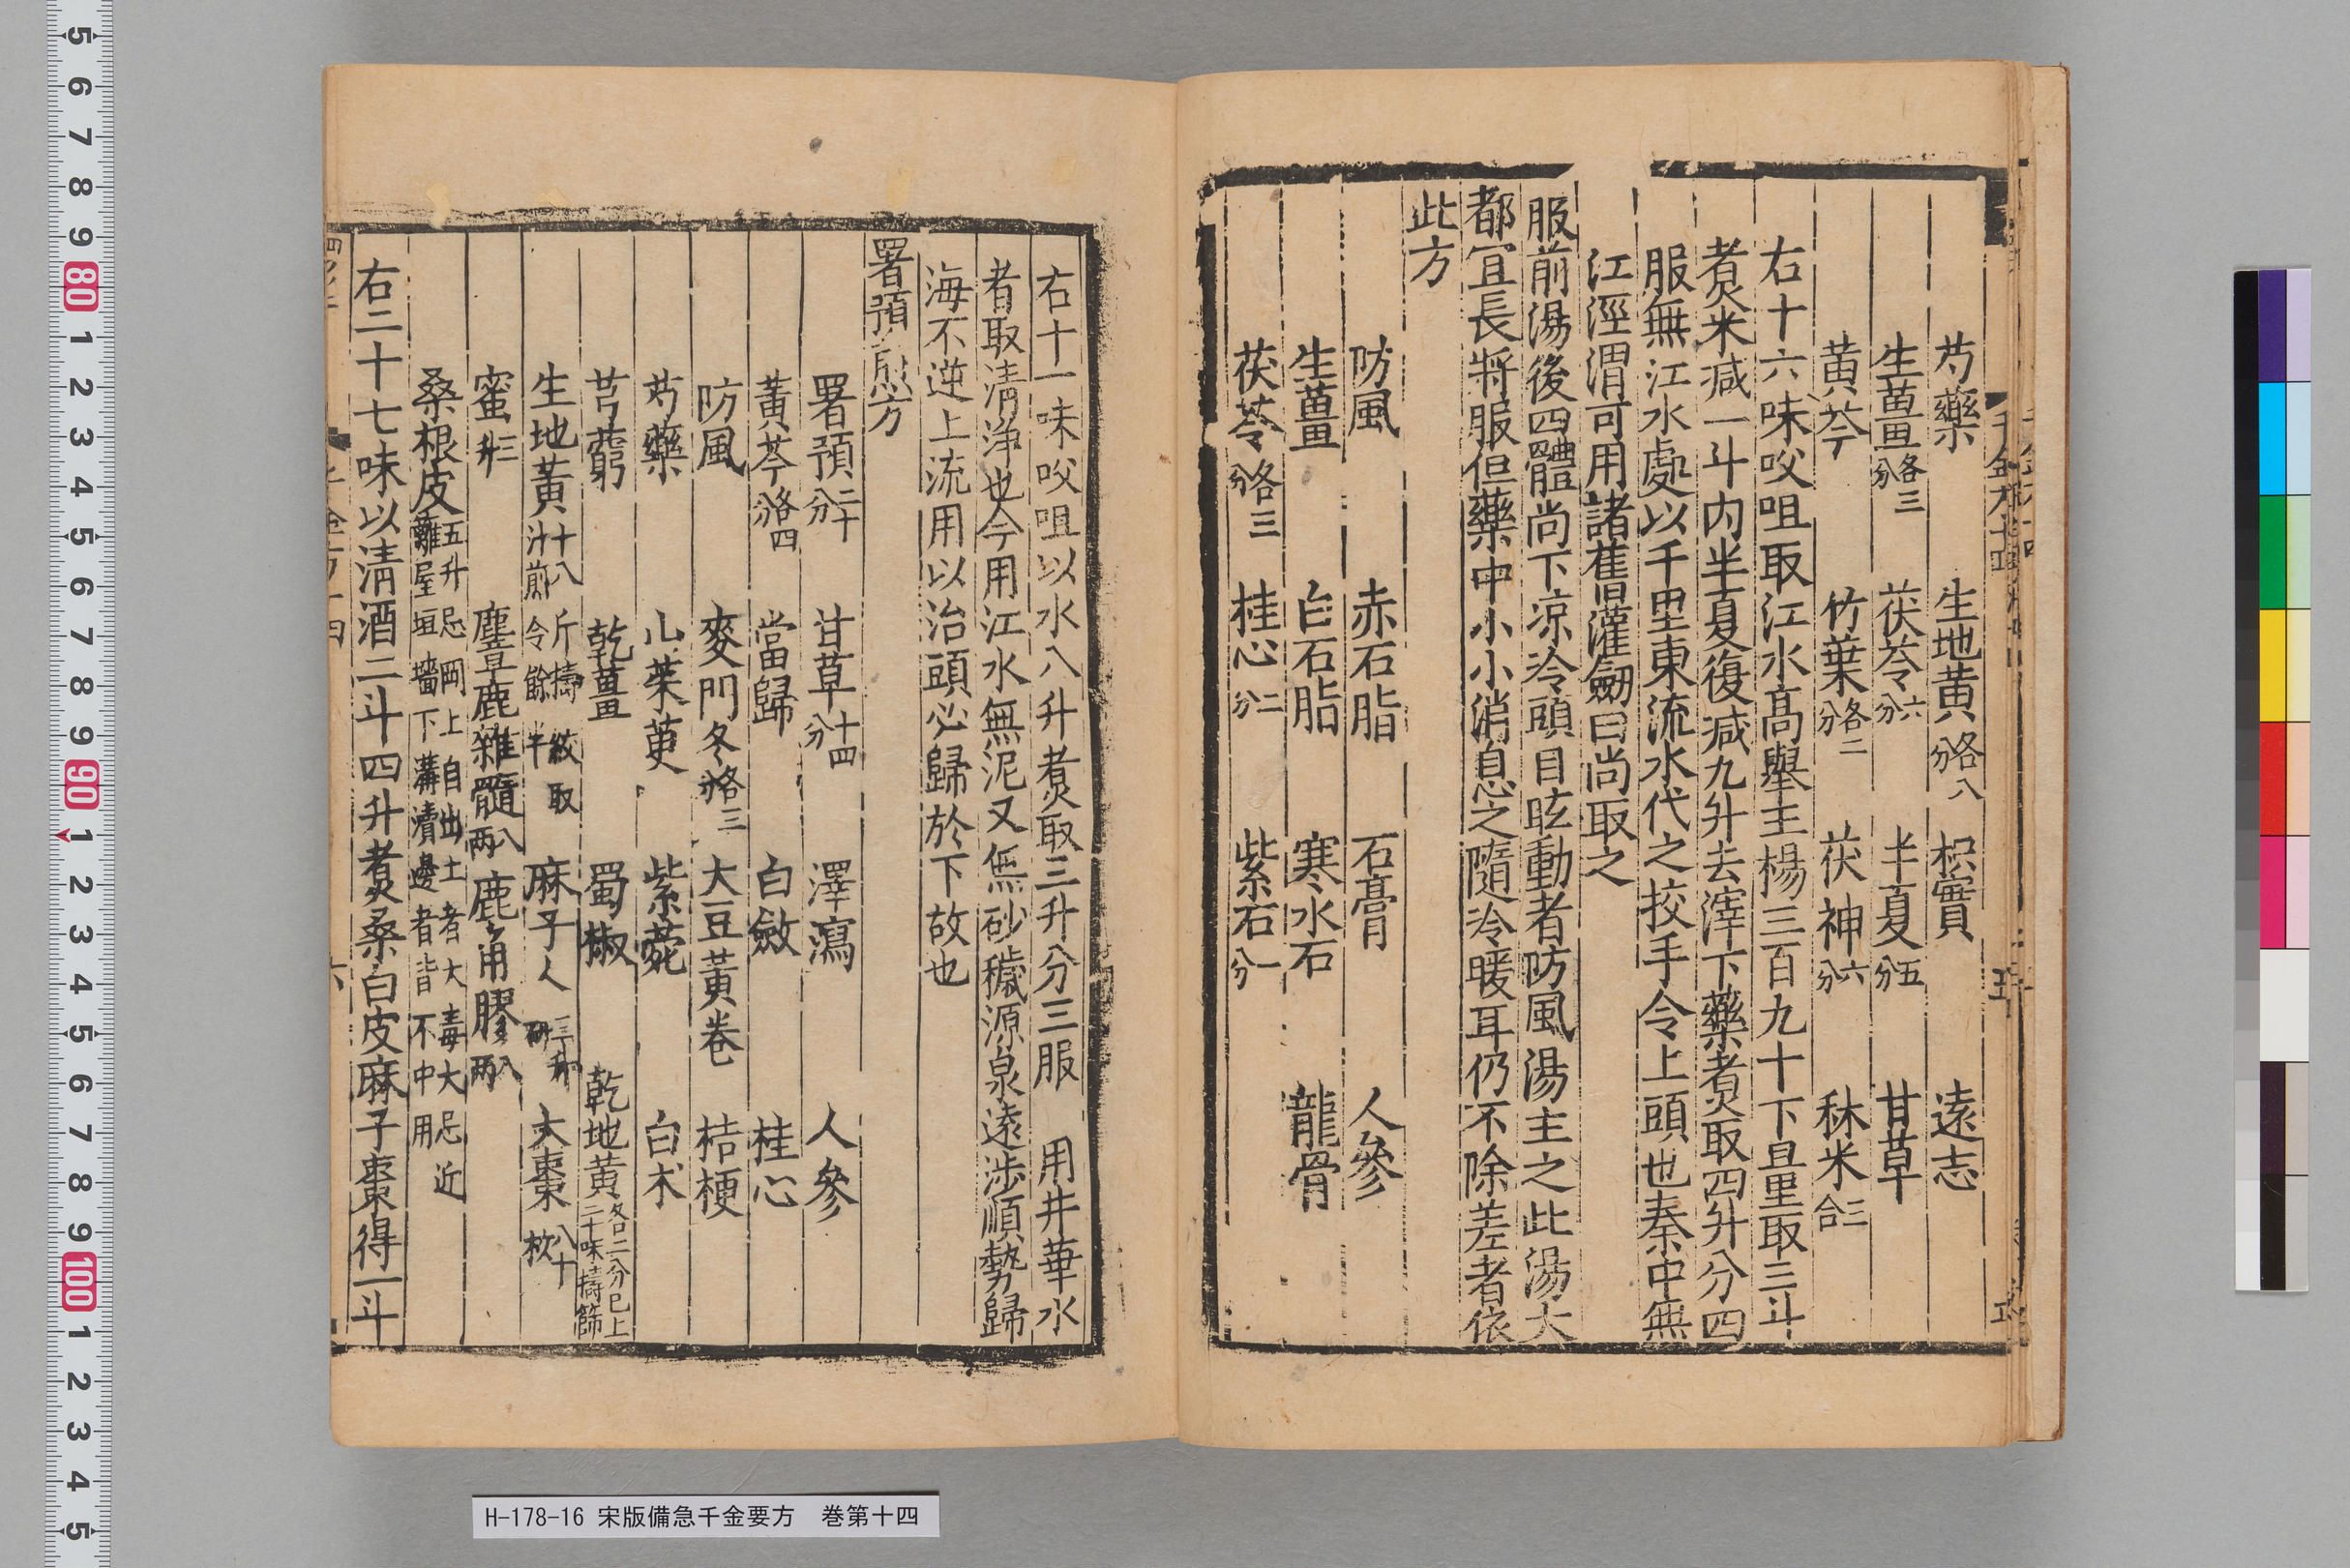 芍藥 生地黃各八分 枳實 遠志
生薑各三分 茯苓六分 半夏五分 甘草
黃芩 竹葉各二分 茯神六分 秫米三合
右十六味㕮咀取江水高舉手揚三百九十下量取三斗
煮米減一斗内半夏復減九升去滓下藥煮取四升分四
服無江水處以千里東流水代之挍手令上頭也秦中無
江涇渭可用諸舊灌釰曰尚取之
服前湯後四體尚下凉冷頭目眩動者防風湯主之此湯大
都宜長將服但藥中小小消息之隨冷暖耳仍不除差者依
此方
防風 赤石脂 石膏 人參
生薑 白石脂 寒水石 龍骨
茯苓各三分 桂心二分 紫石一分
右十一味㕮咀以水八升煮取三升分三服 用井華水
者取清淨也今用江水無泥又無砂穢源泉遠涉順勢歸
海不逆上流用以治頭必歸於下故也
署預煎方
署預二十分 甘草十四分 澤瀉 人參
黃芩各四分 當歸 白斂 桂心
防風 麥門冬各三分 大豆黃卷 桔梗
芍藥 山茱萸 紫菀 白朮
芎藭 乾薑 蜀椒 乾地黃各二分已上二十味擣篩
生地黃十八斤擣絞取汁煎令餘半 麻子人三升研 大棗八十枚
蜜三升 麞鹿雜髓八兩 鹿角膠八兩
桑根皮五升忌岡上自出土者大毒大忌近離屋垣墻下溝瀆邊者皆不中用
右二十七味以清酒二斗四升煮桑白皮麻子棗得一斗
六
H-178-16 宋版備急千金要方 巻第十四